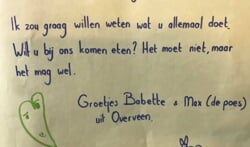 Ik zou graag willen weten wat u allemaal doet.
Wilt u bij ons komen eten? Het moet niet, maar
het mag wel.
Groetjes Babette & Max (de poes)
uit Overveen.